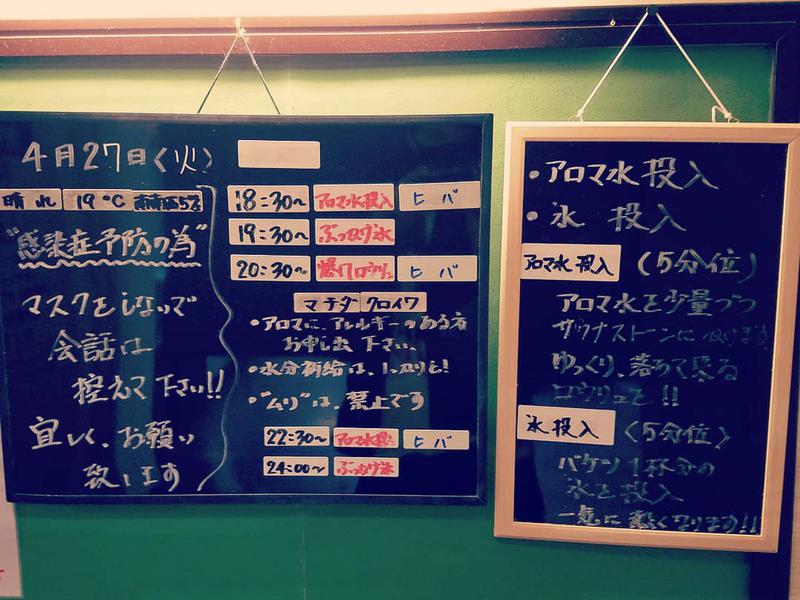 4月27日(火)
晴れ 19℃
"感染症予防の為"
マスクをしないで
会話は
控えて下さい!!
宜しく、お願い
致します
18:30~ アロマ水投入 ヒバ
19:30~ ぶっかけ氷
20:30~ 爆風ロウリュ ヒバ
マチダ クロイワ
・アロマに、アレルギーのある方
お申し出下さい、
・水分補給は、しっかりと!
・"ムリ"は、禁止です
22:30~ アロマ水投入 ヒバ
24:00~ ぶっかけ氷
・アロマ水投入
・氷 投入
アロマ水投入 (5分位)
アロマ水を少量づつ
サウナストーンにかけます
ゆっくり、落ちて来る
ロウリュと!!
氷投入 (5分位)
バケツ1杯分の
氷を投入
一気に熱くなります!!